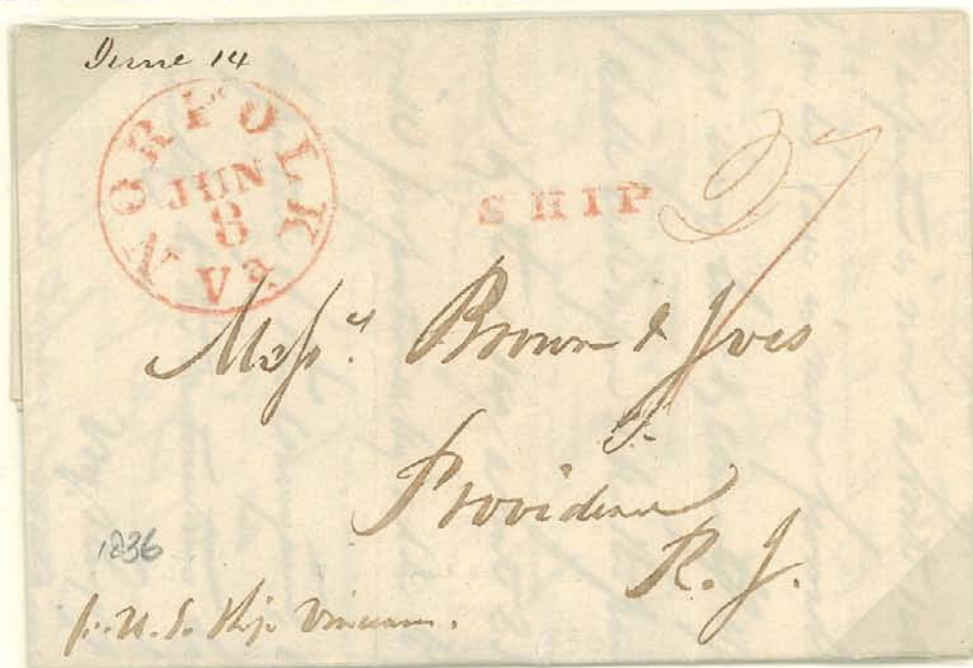 June 14
NORFOLK
JUN
8
Va.
SHIP
27
Messrs Brown & Ives
Providence
R. I.
1836
pr. U. S. Ship Vincennes.